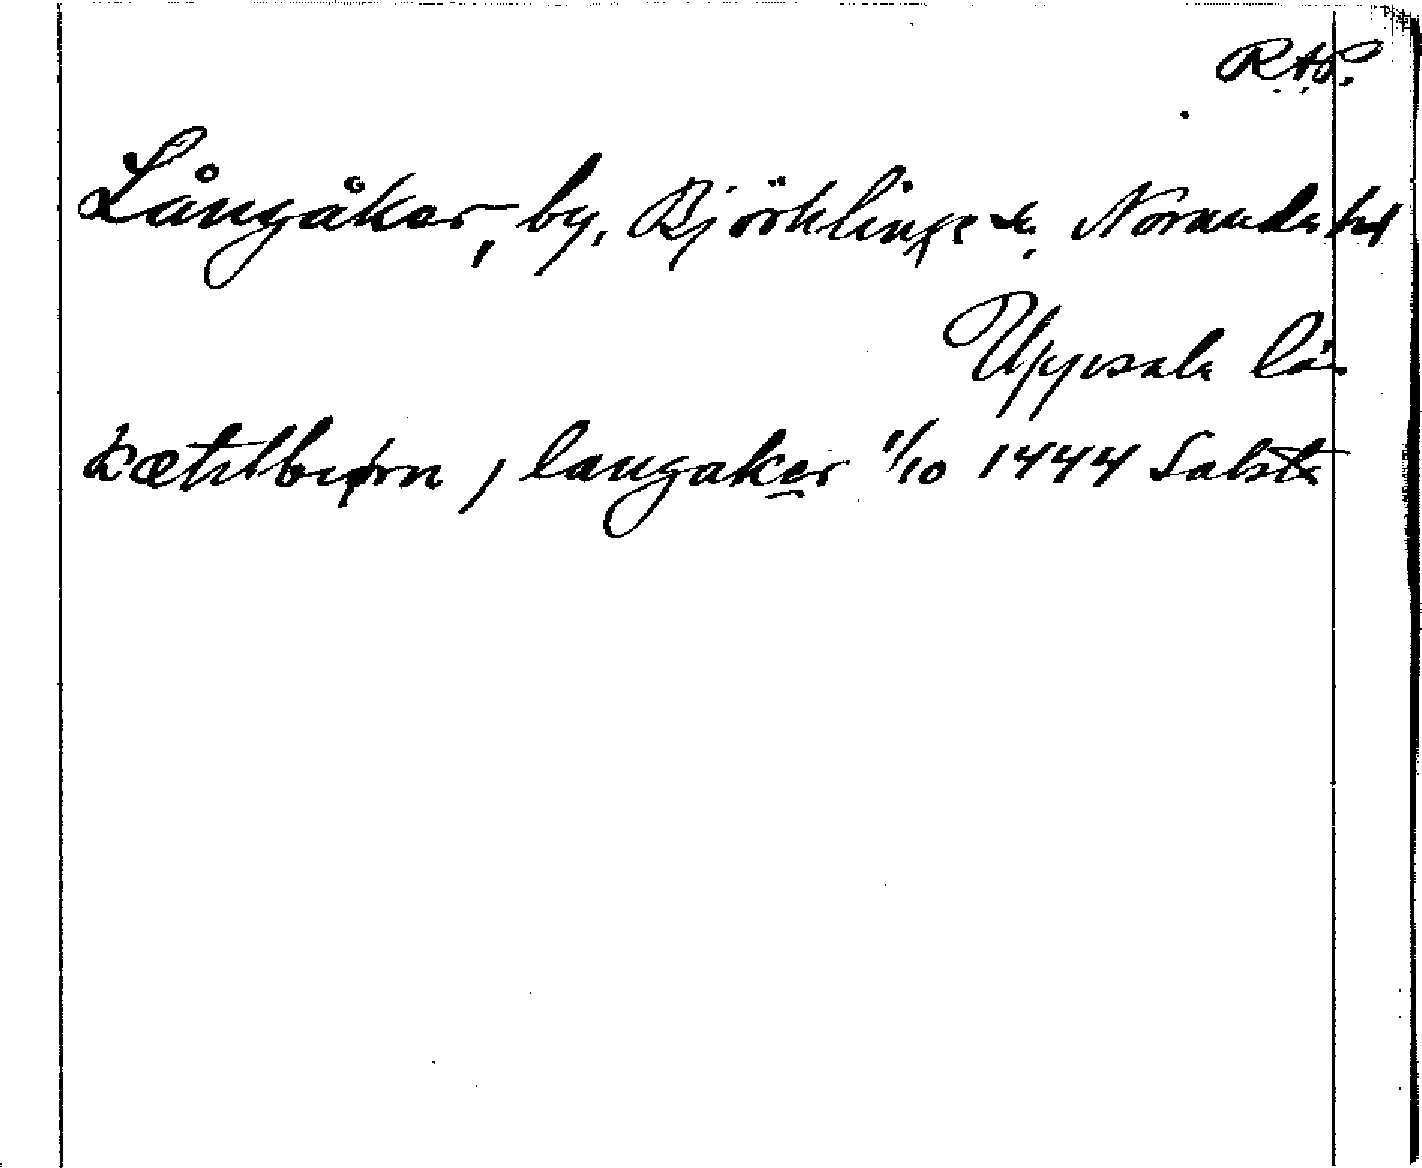 R.A.P.
Långåker, by, Björklinge sn. Norunda hd
Uppsala län
kætilbiørn j langaker 1/10 1444 Salsta